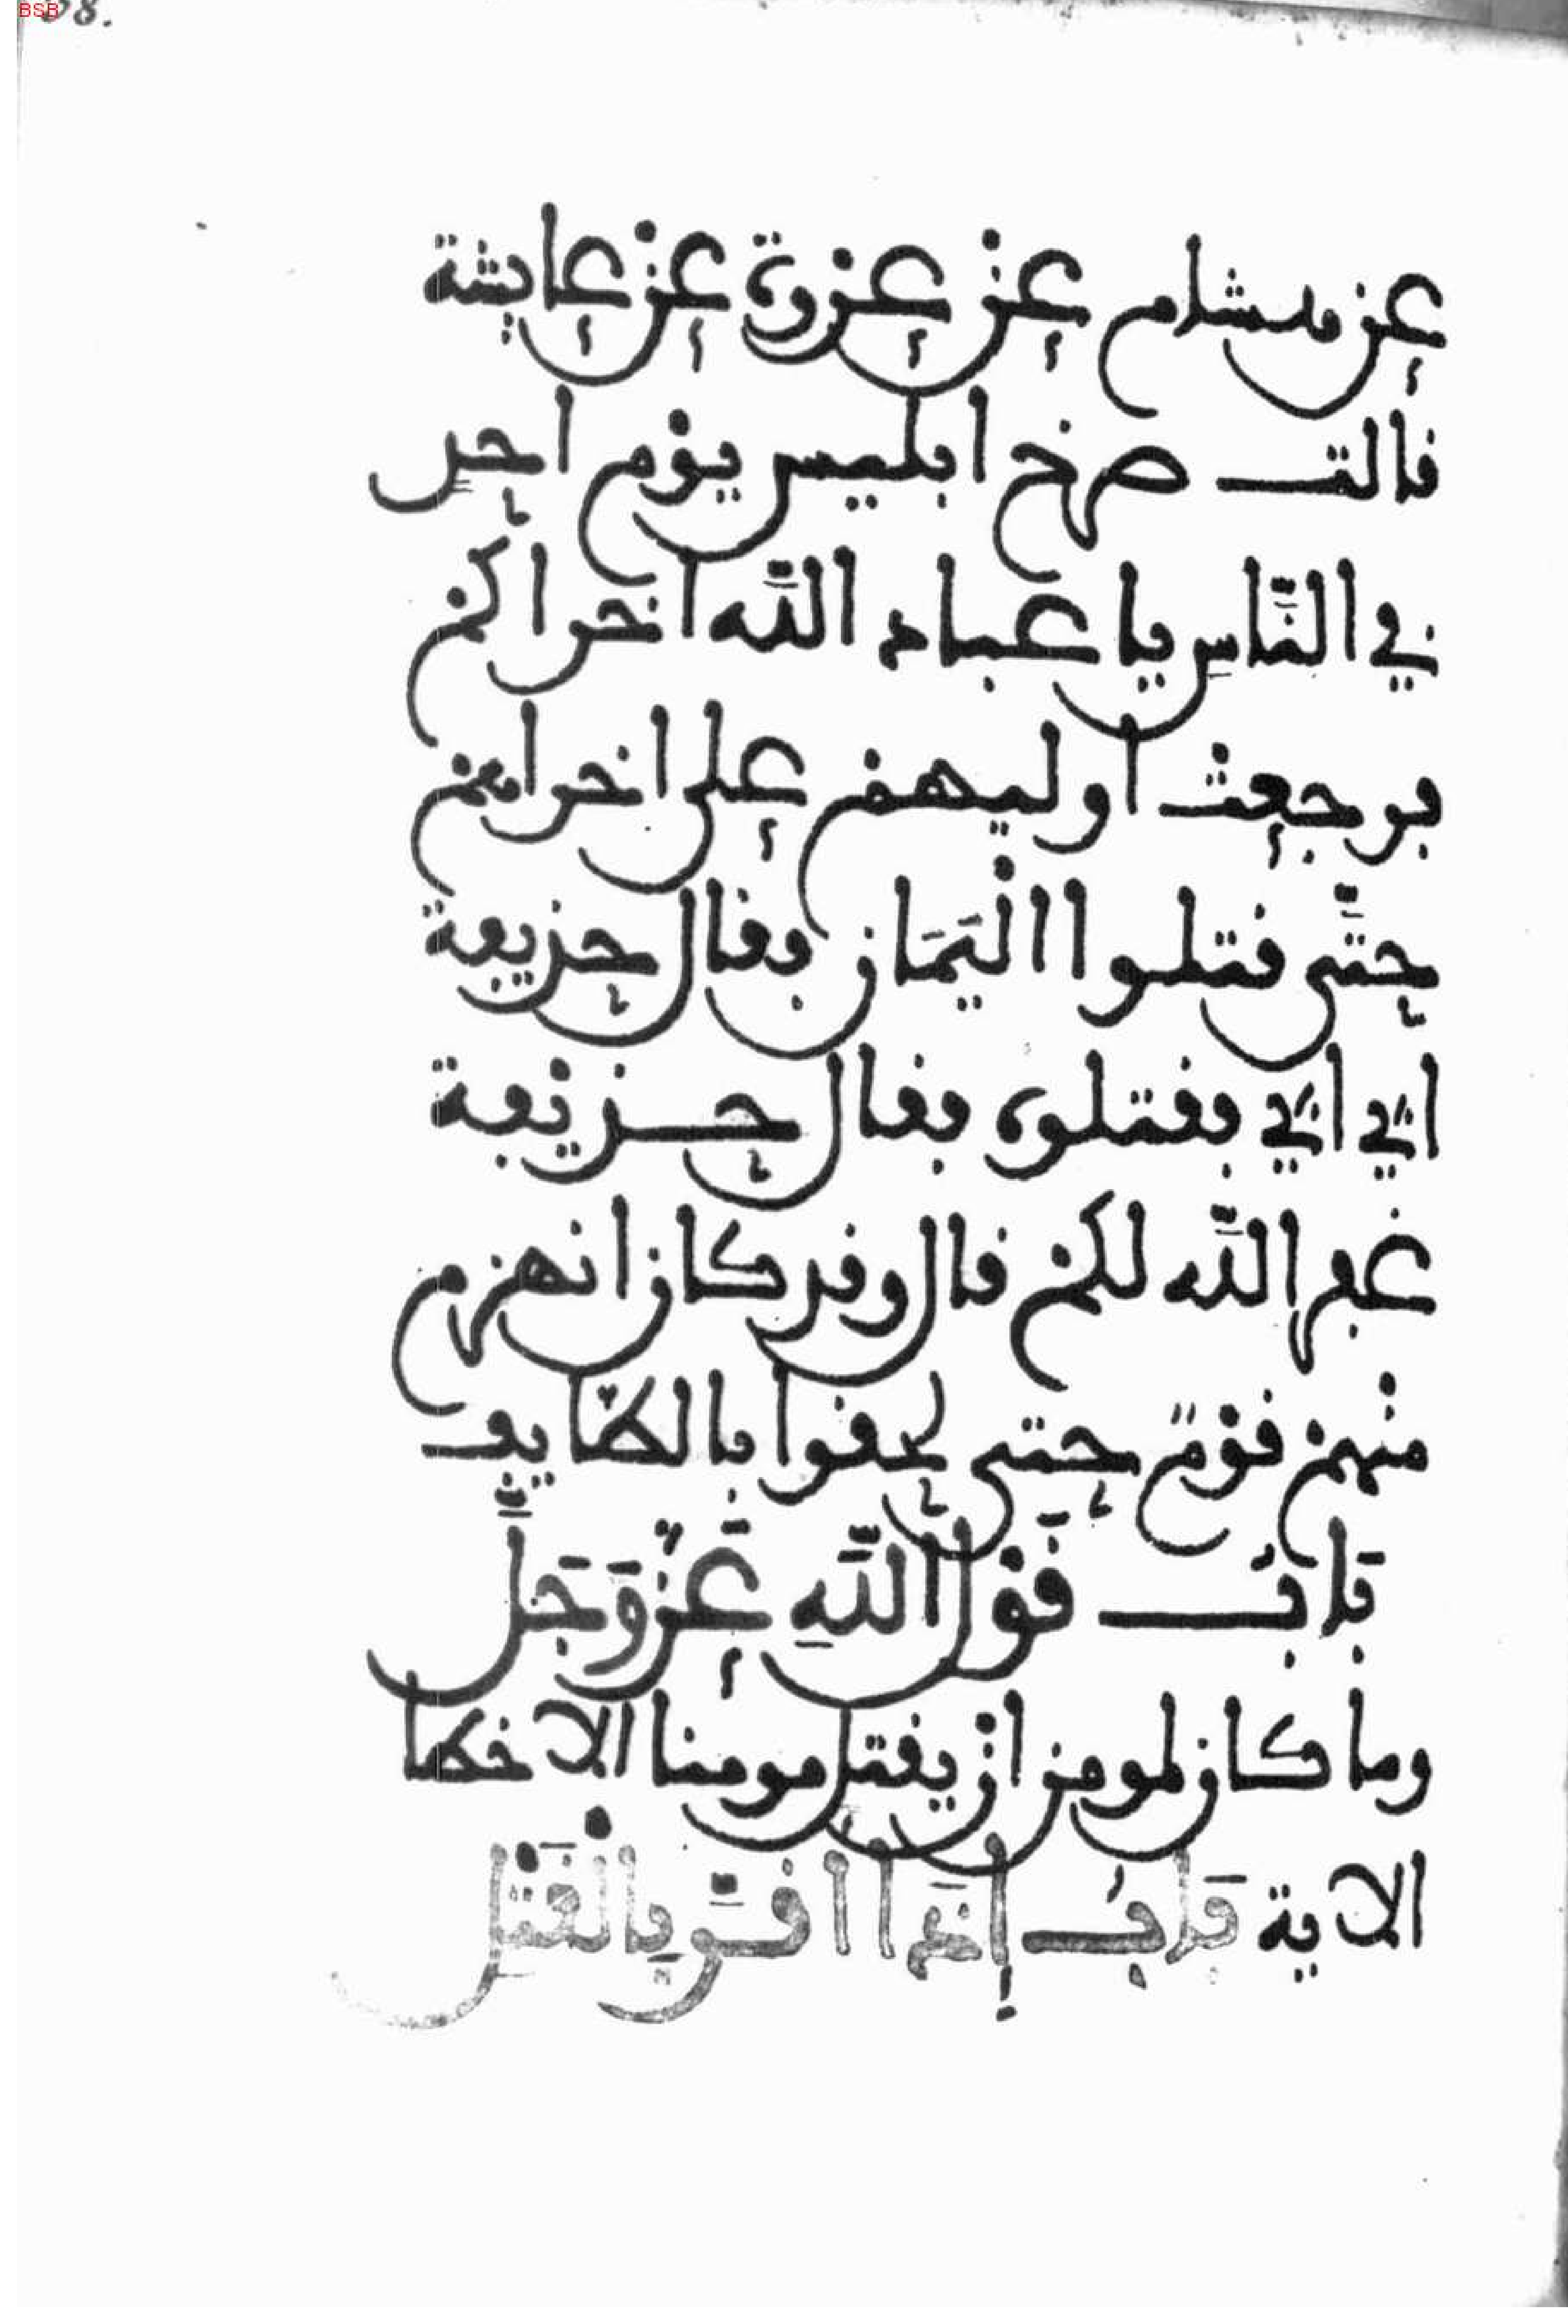 عن هشام عن عروة عن عايشة
قالت صرخ ابليس يوم احد
في الناس يا عباد الله اخراكم
فرجعت اوليهم على اخراهم
حتى قتلوا اليمان فقال حذيفة
ابي ابي فقتلوه فقال حذيفة
غفر الله لكم قال وقد كان انهزم
منهم قوم حتى لحقوا بالطايف
باب قول الله عز وجل
وما كان لمومن ان يقتل مومنا الا خطا
الاية باب اذا اقر بالقتل